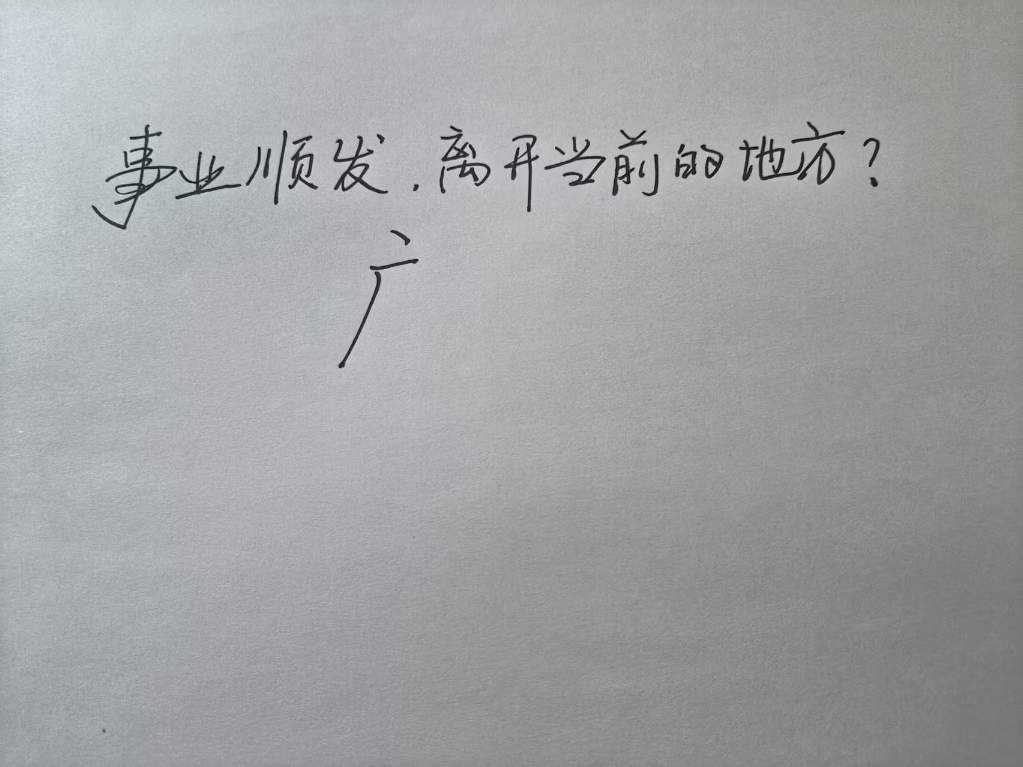 事业顺发,离开当前的地方?
广